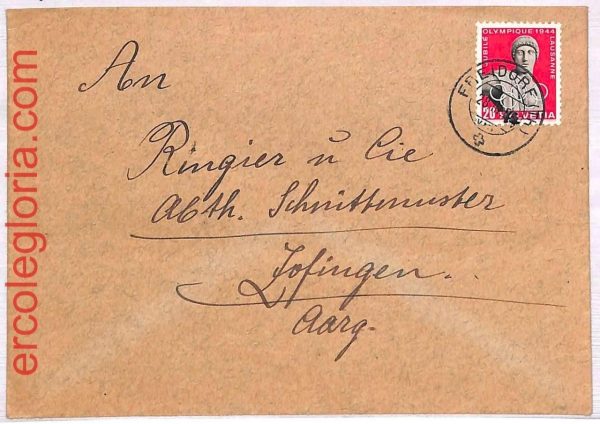 ercolegloria.com
JUBILÉ OLYMPIQUE 1944 LAUSANNE
20 HELVETIA
FREIDORF (
An
Ringier u Cie
Abth. Schnittmuster
Zofingen.
Aarg.